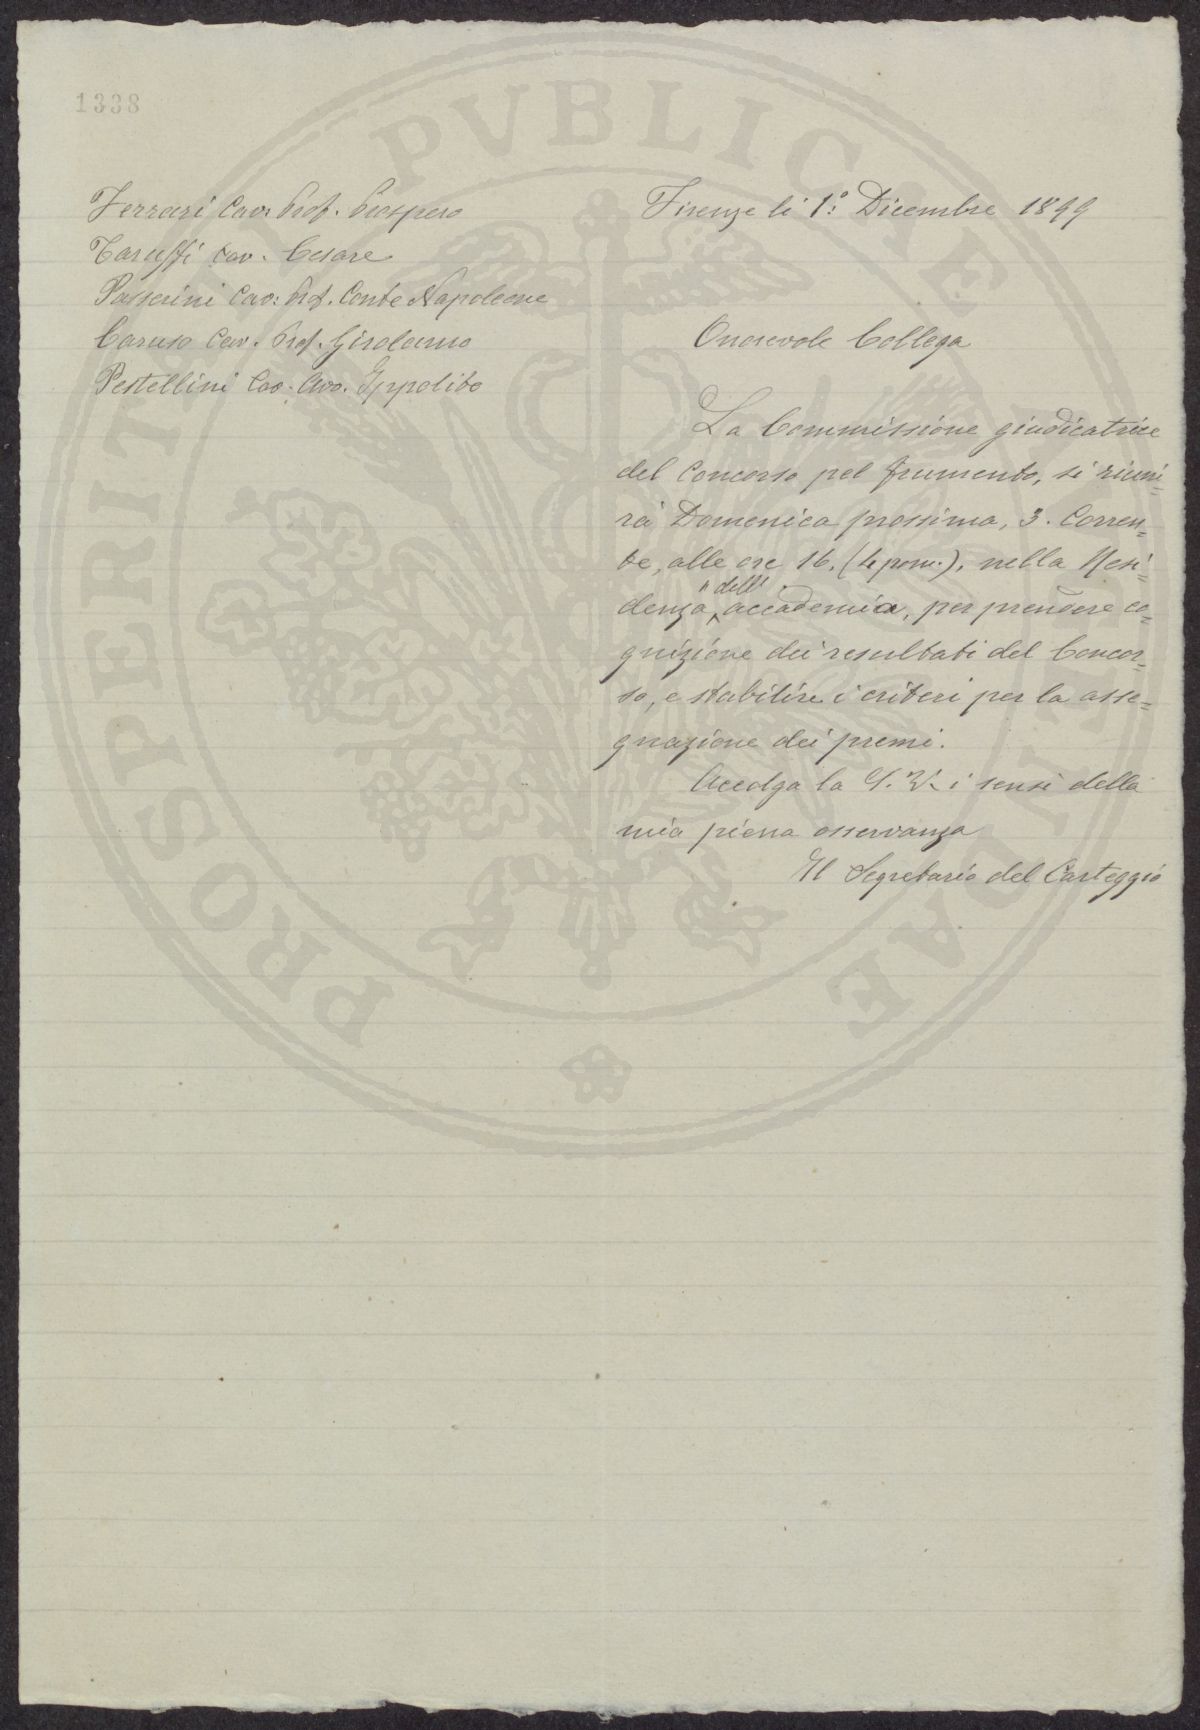 1338
Ferrari Cav. Prof. Prospero
Taruffi Cav. Cesare
Passerini Cav. Prof. Conte Napoleone
Caruso Cav. Prof. Girolamo
Pestellini Cav. Avv. Ippolito
Firenze li 1° Dicembre 1899
Onorevole Collega
La Commissione giudicatrice
del Concorso pel frumento, si riuni=
rà Domenica prossima, 3. Corren=
te, alle ore 16. (4 pom.), nella Resi=
dell'
denza accademia, per prendere co=
gnizione dei resultati del Concor=
so, e stabilire i criteri per la asse=
gnazione dei premi.
Accolga la S. V. i sensi della
mia piena osservanza
Il Segretario del Carteggio
PROSPERITATI PVBLICAE AVGENDAE